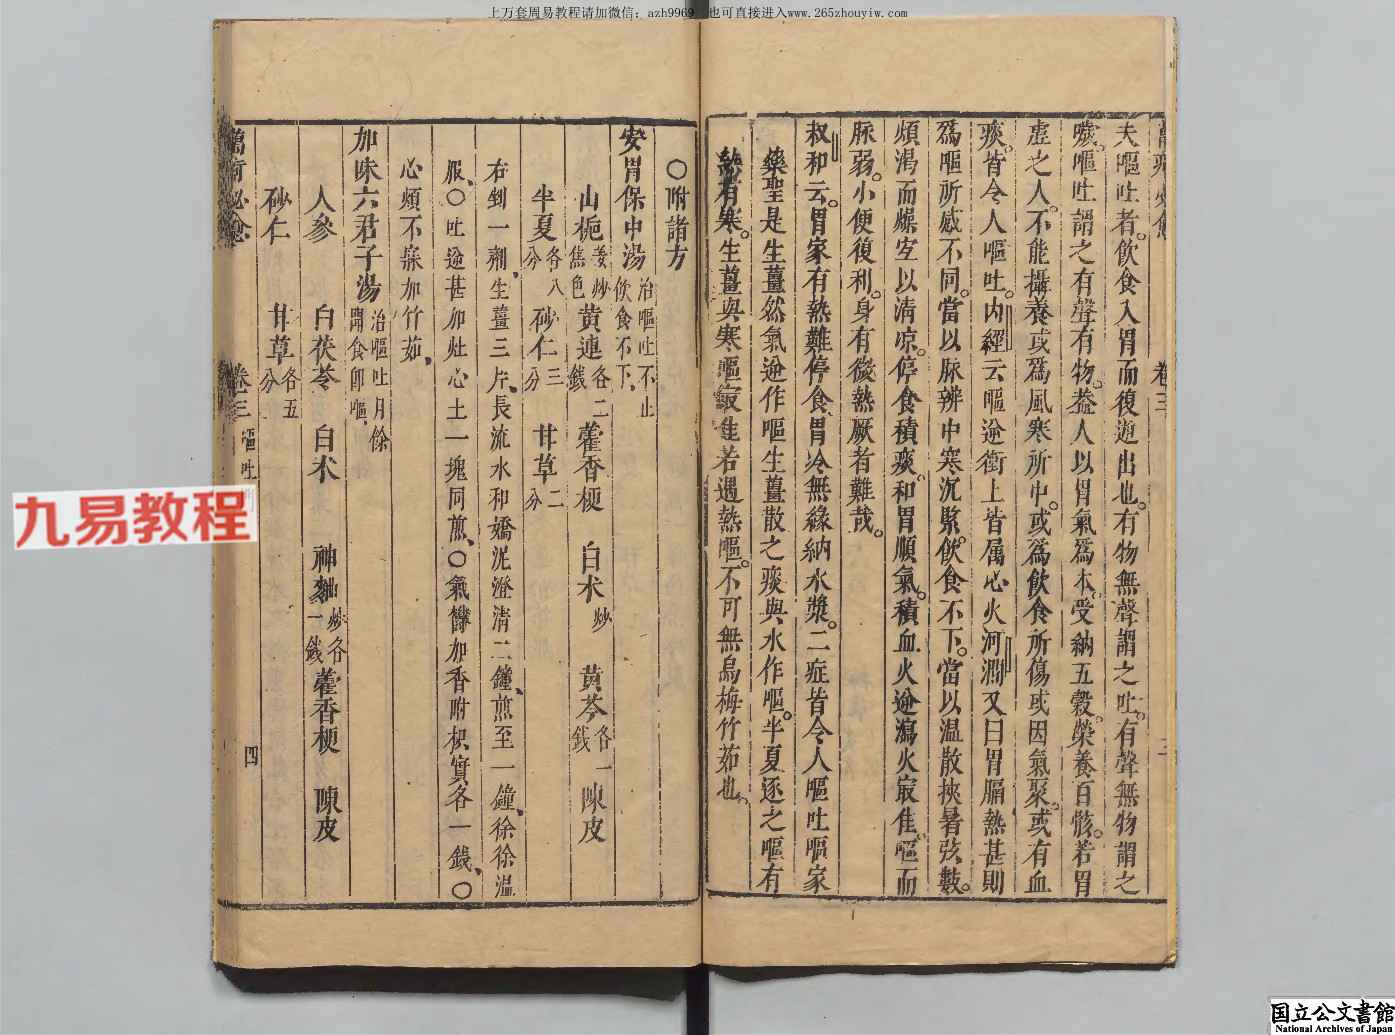 上万套周易教程请加微信：azh9969 也可直接进入www.265zhouyiw.com
卷三
夫嘔吐者飲食入胃而復逆出也有物無聲謂之吐有聲無物謂之
噦嘔吐謂之有聲有物葢人以胃氣爲本受納五穀榮養百骸若胃
虛之人不能攝養或爲風寒所中或爲飲食所傷或因氣聚或有血
痰皆令人嘔吐內經云嘔逆衝上皆属心火河澗又曰胃膈熱甚則
爲嘔所感不同當以脉辨中寒沉緊飲食不下當以温散挾暑弦數
煩渴而燥宜以清凉停食積痰和胃順氣積血火逆瀉火㝡佳嘔而
脉弱小便復利身有微熱厥者難哉
叔和云胃家有熱難停食胃冷無緣納水漿二症皆令人嘔吐嘔家
藥聖是生薑然氣逆作嘔生薑散之痰與水作嘔半夏逐之嘔有
熱有寒生薑與寒嘔㝡佳若遇熱嘔不可無烏梅竹茹也
〇附諸方
安胃保中湯 治嘔吐不止飲食不下
山梔姜炒焦色 黃連各二錢 藿香梗 白术炒 黃芩各一錢 陳皮
半夏各八分 砂仁三分 甘草二分
右剉一劑生薑三片長流水和嬌泥澄清二鐘煎至一鐘徐徐温
服〇吐逆甚加灶心土一塊同煎〇氣欝加香附枳實各一錢〇
心煩不寐加竹茹
加味六君子湯 治嘔吐月餘聞食卽嘔
人參 白茯苓 白术 神麯炒各一錢 藿香梗 陳皮
砂仁 甘草各五分
卷三 嘔吐 四
九易教程
国立公文書館
National Archives of Japan